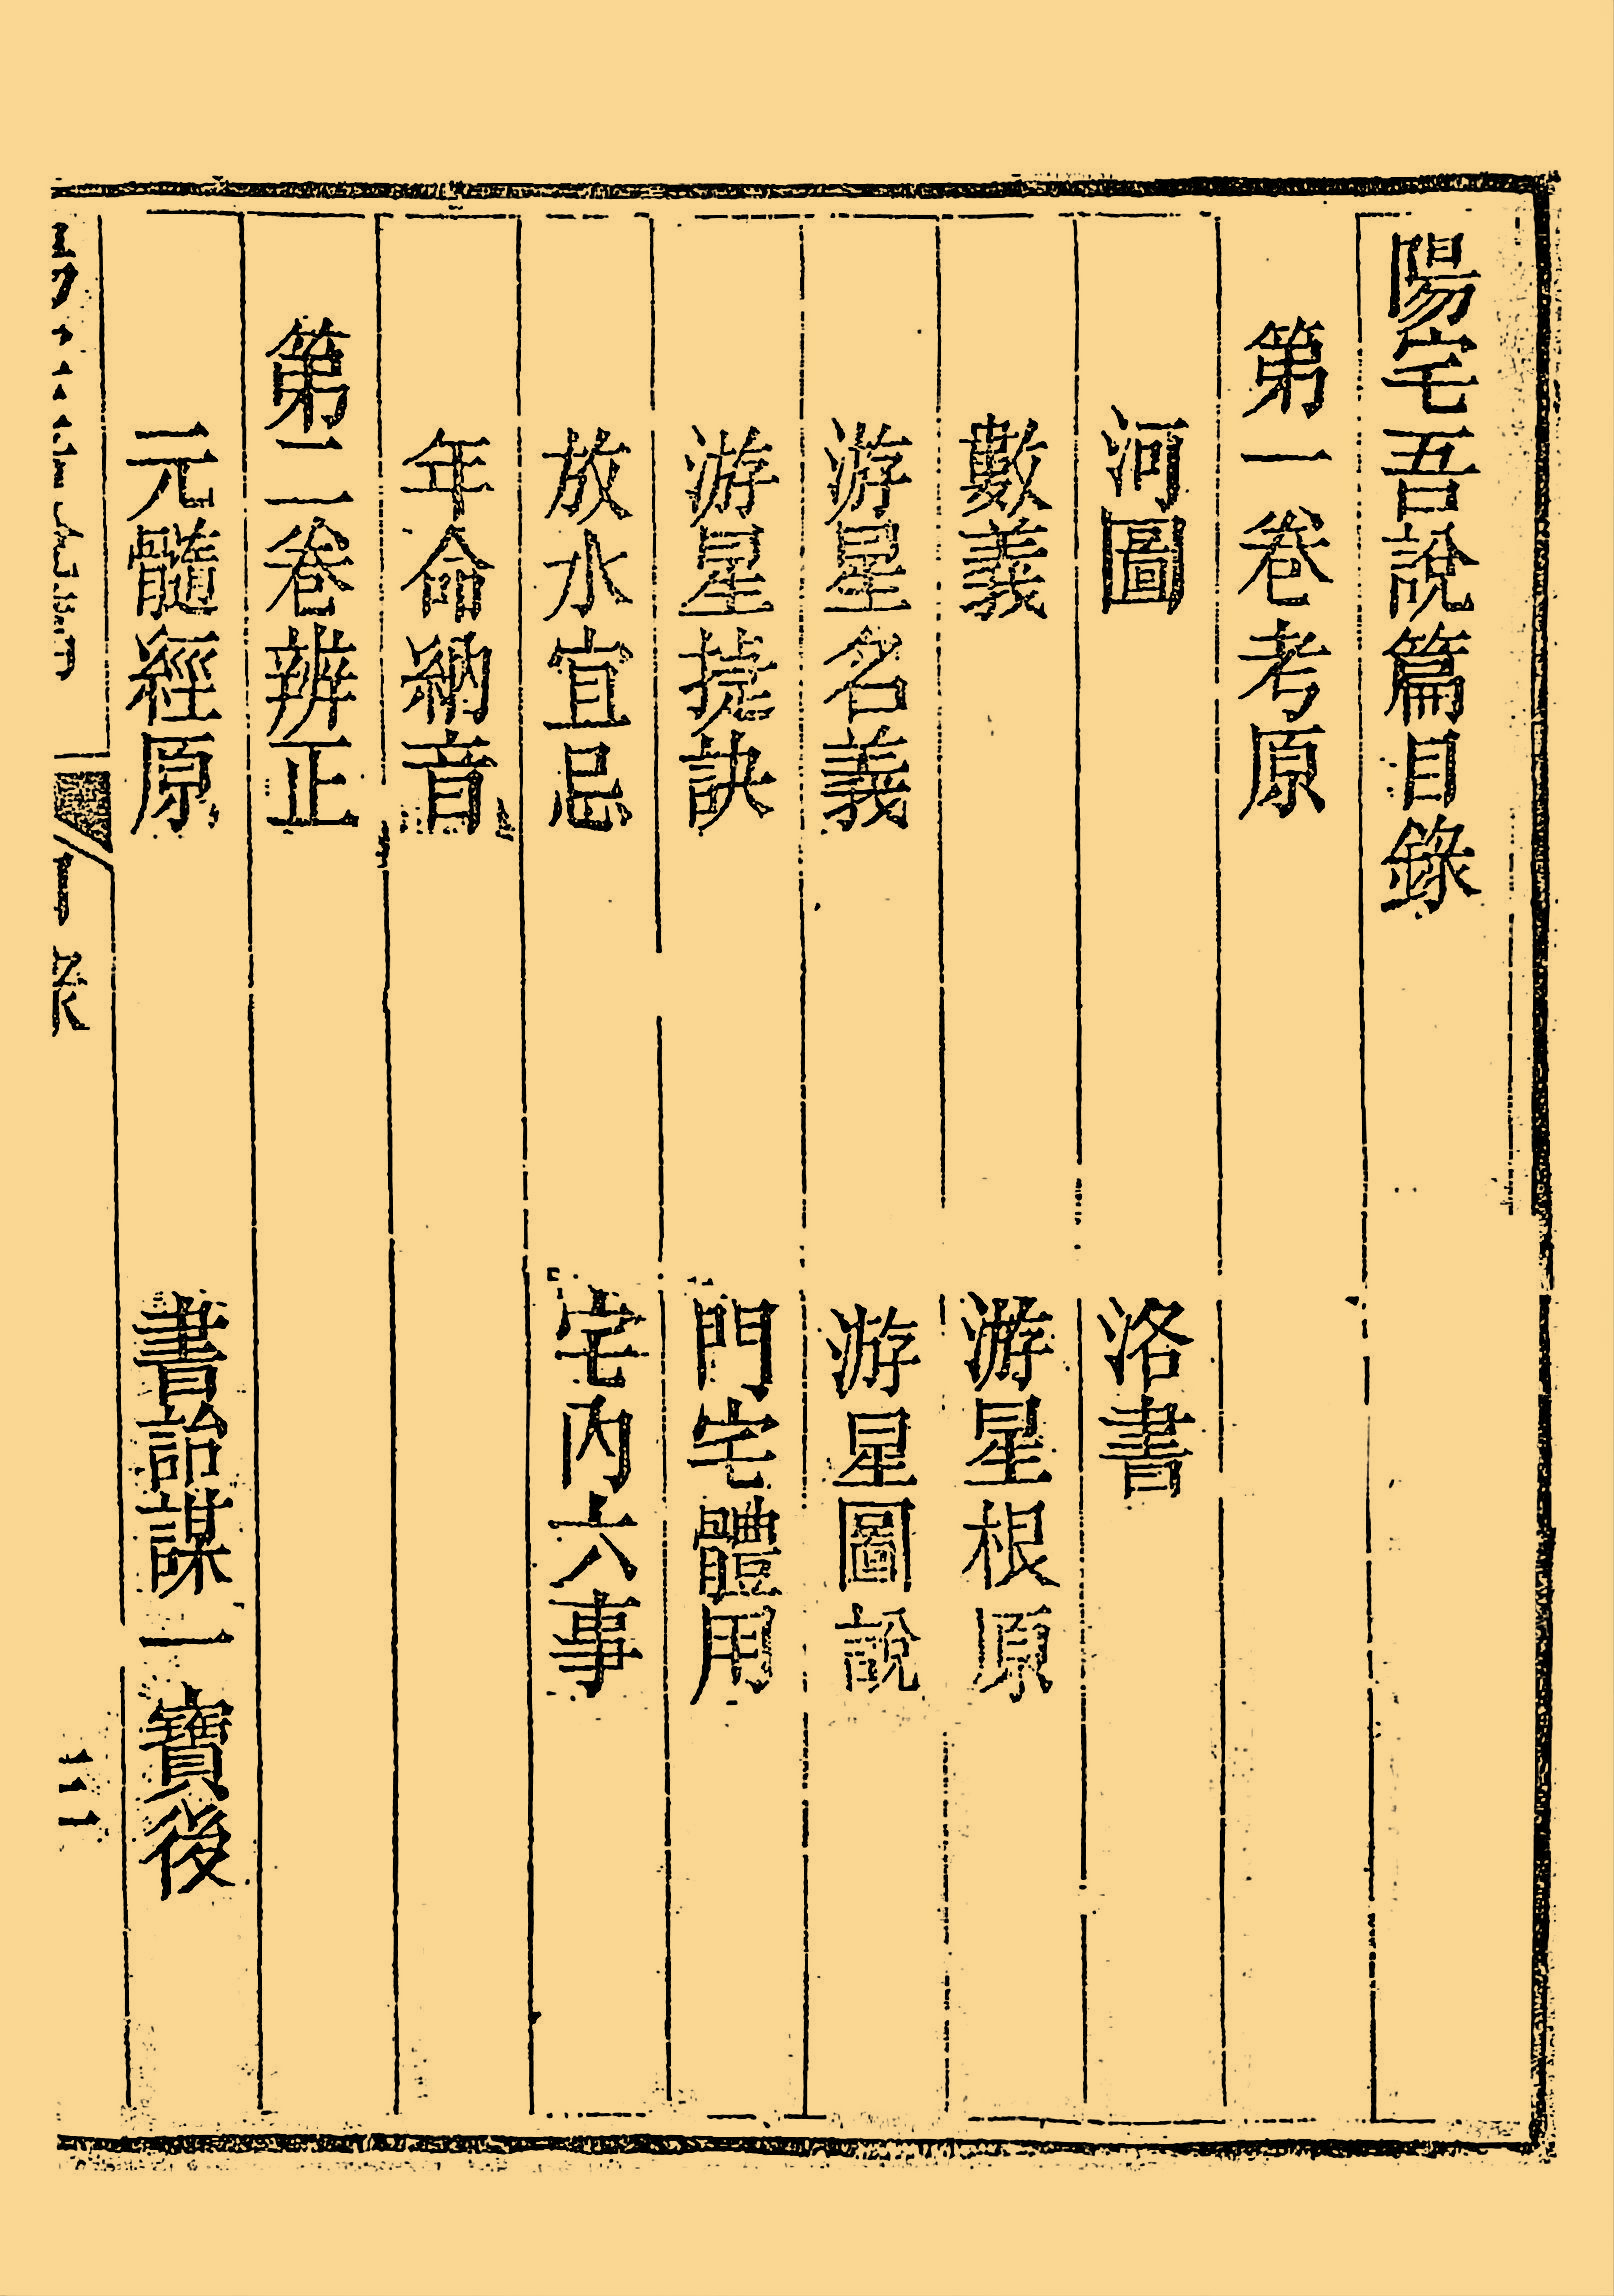 陽宅吾說篇目錄
第一卷考原
河圖　洛書
數義　游星根原
游星名義　游星圖說
游星捷訣　門宅體用
放水宜忌　宅內六事
年命納音
第二卷辨正
元髓經原　書詒謀一寶後